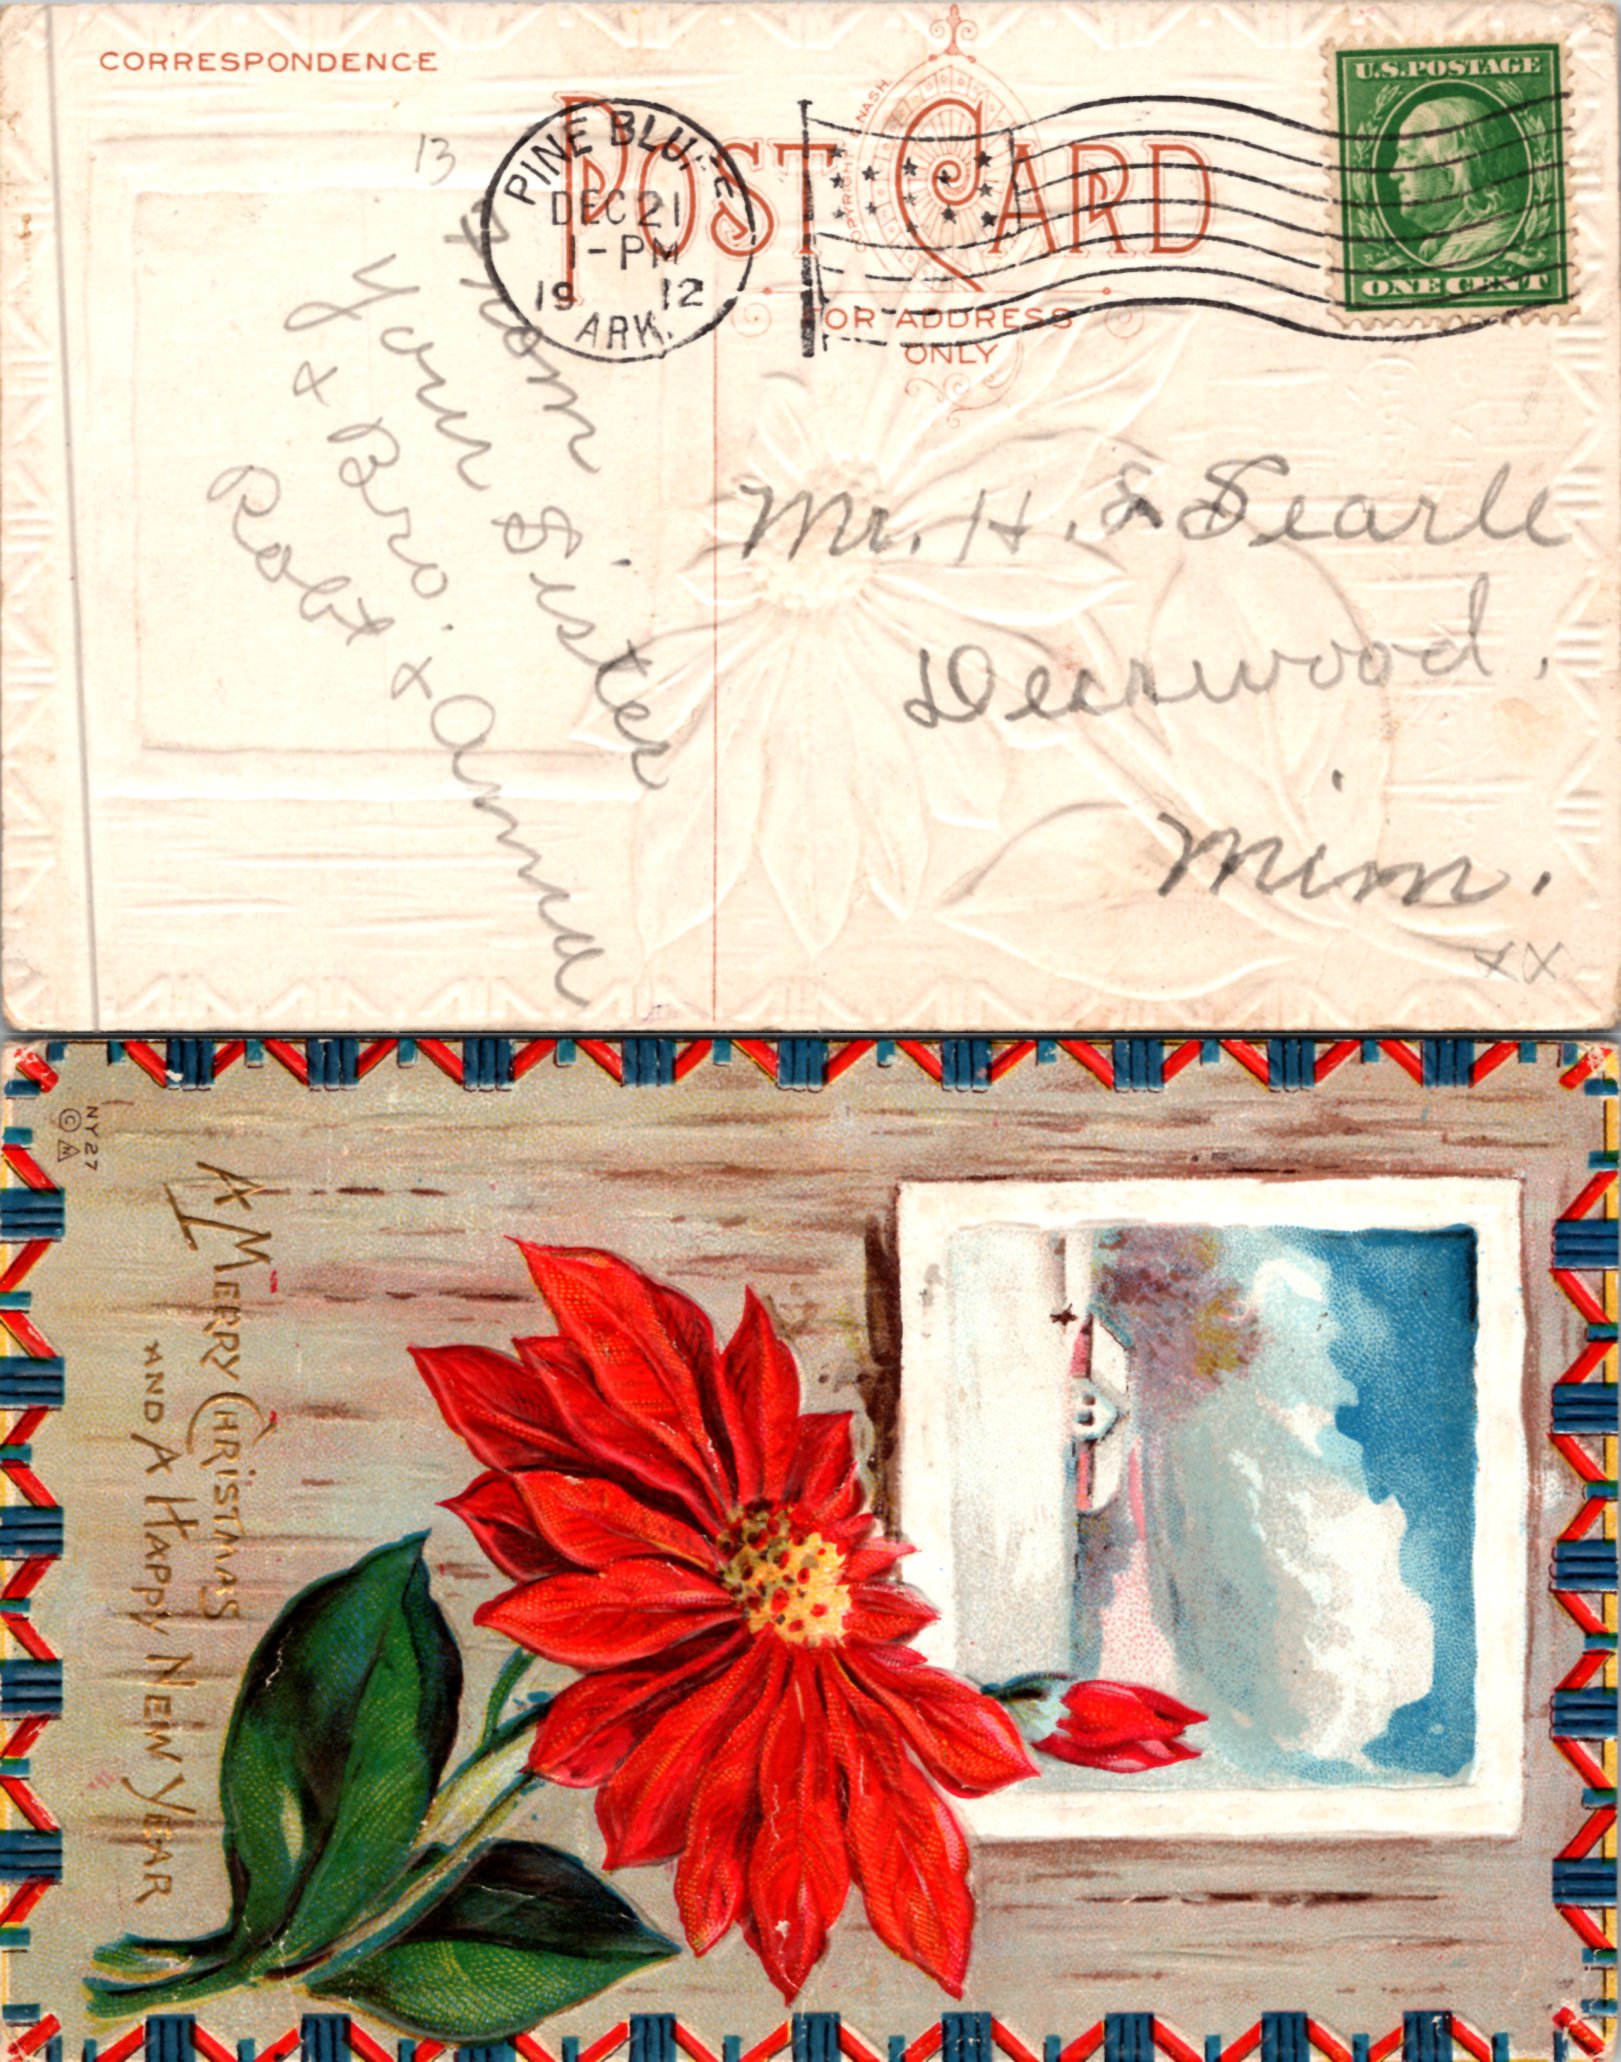 CORRESPONDENCE
POST CARD
FOR ADDRESS
ONLY
COPYRIGHT E NASH
PINE BLUFF
DEC 21
1-PM
19 12
ARK.
U.S. POSTAGE
ONE CENT
13
From
Your Sister
& Bro.
Robt & Anna
Mr. H. S. Searle
Deerwood.
Minn.
XX
NY 27
©
A MERRY CHRISTMAS
AND A HAPPY NEW YEAR